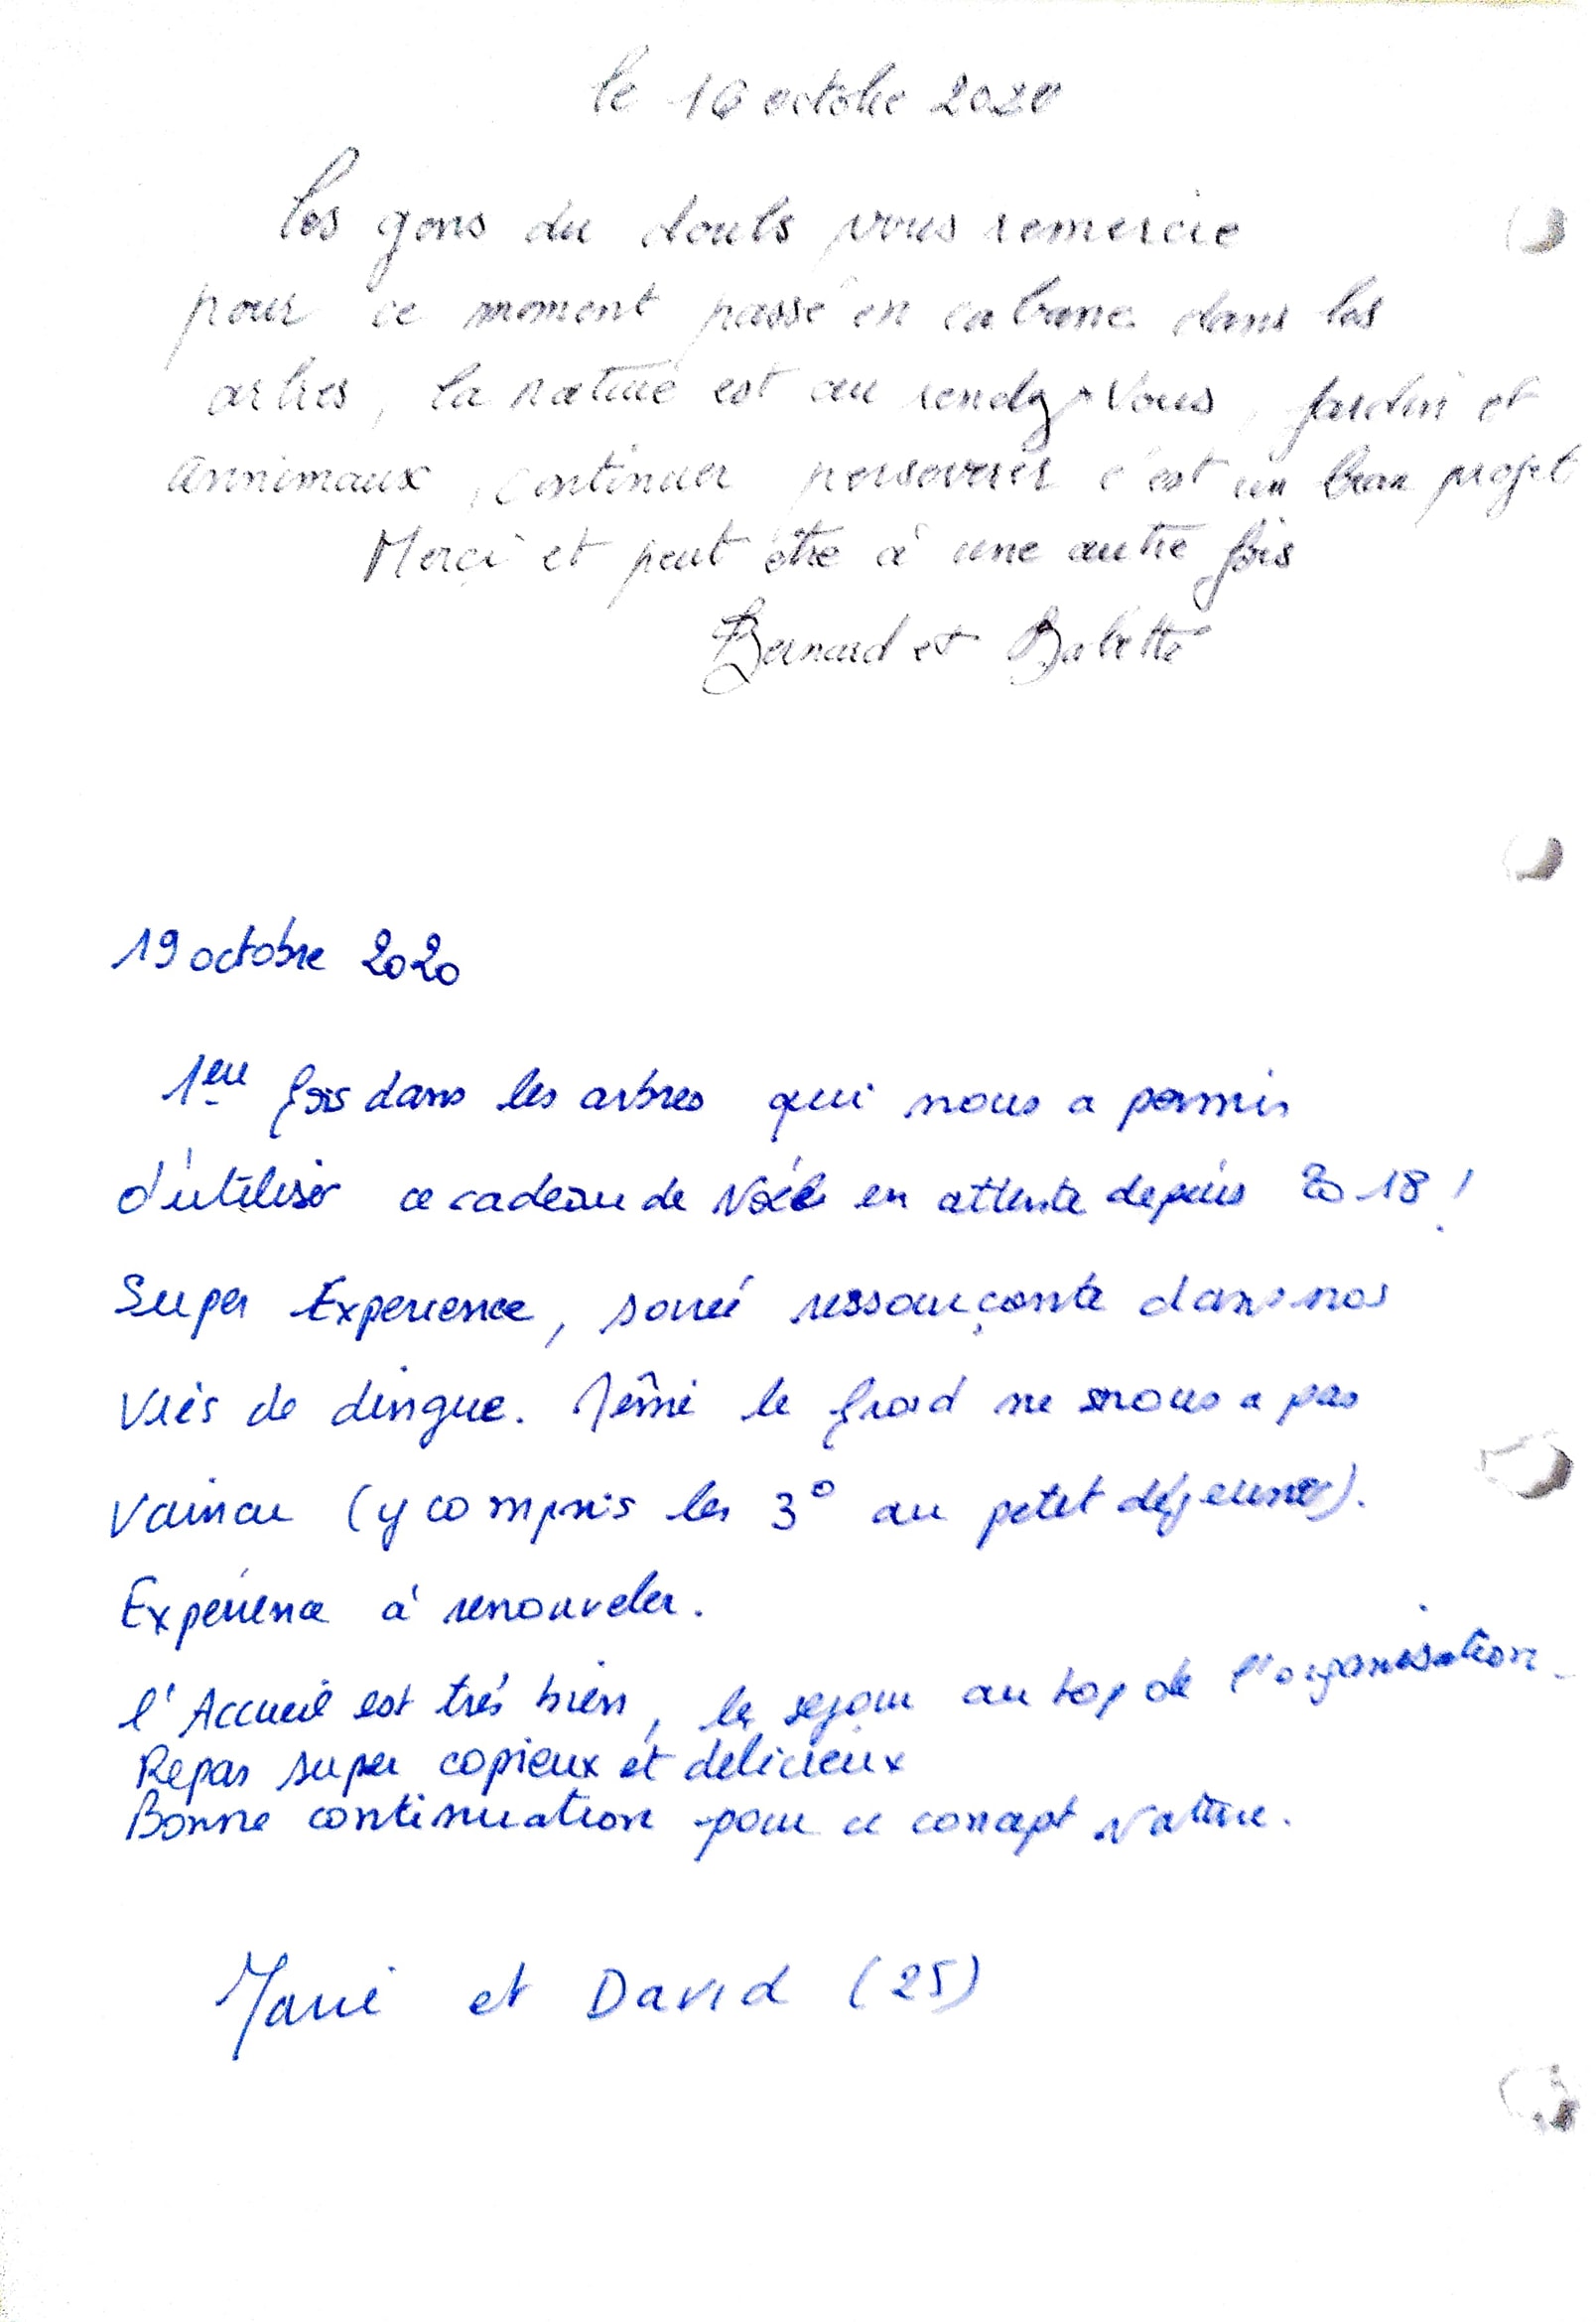 le 16 octobre 2020
les gens du doubs vous remercie
pour ce moment passé en cabane dans les
arbres, la nature est au rendez-vous, jardin et
annimaux, continuer perseverer c'est un beau projet
Merci et peut être à une autre fois
Bernard et Babette
19 octobre 2020
1ère fois dans les arbres qui nous a permis
d'utiliser ce cadeau de Noël en attente depuis 2018 !
Super Experience, soirée ressourçante dans nos
vies de dingue. Même le froid ne nous a pas
vaincu (y compris les 3° au petit déjeuner).
Expérience à renouveler.
l'Accueil est très bien, le sejour au top de l'organisation.
Repas super copieux et délicieux
Bonne continuation pour ce concept Nature.
Marie et David (25)